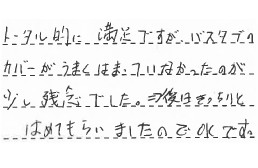 トータル的に満足ですが、バスタブの
カバーがうまくはまっていなかったのが
少し残念でした。⇒後はきっちりと
はめてもらいましたのでOKです。